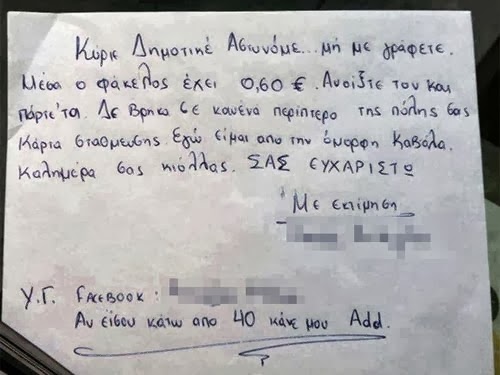 Κύριε Δημοτικέ Αστυνόμε... μή με γράφετε.
Μέσα ο φάκελος έχει 0,60 €. Ανοίξτε τον και
πάρτε'τα. Δε βρήκα σε κανένα περίπτερο της πόλης σας
Κάρτα στάθμευσης Εγώ είμαι από την όμορφη Καβάλα.
Καλημέρα σας κιόλλας. ΣΑΣ ΕΥΧΑΡΙΣΤΩ
Με εκτίμηση
Υ.Γ. FACEBOOK :
Αν είσαι κάτω από 40 κάνε μου Add.